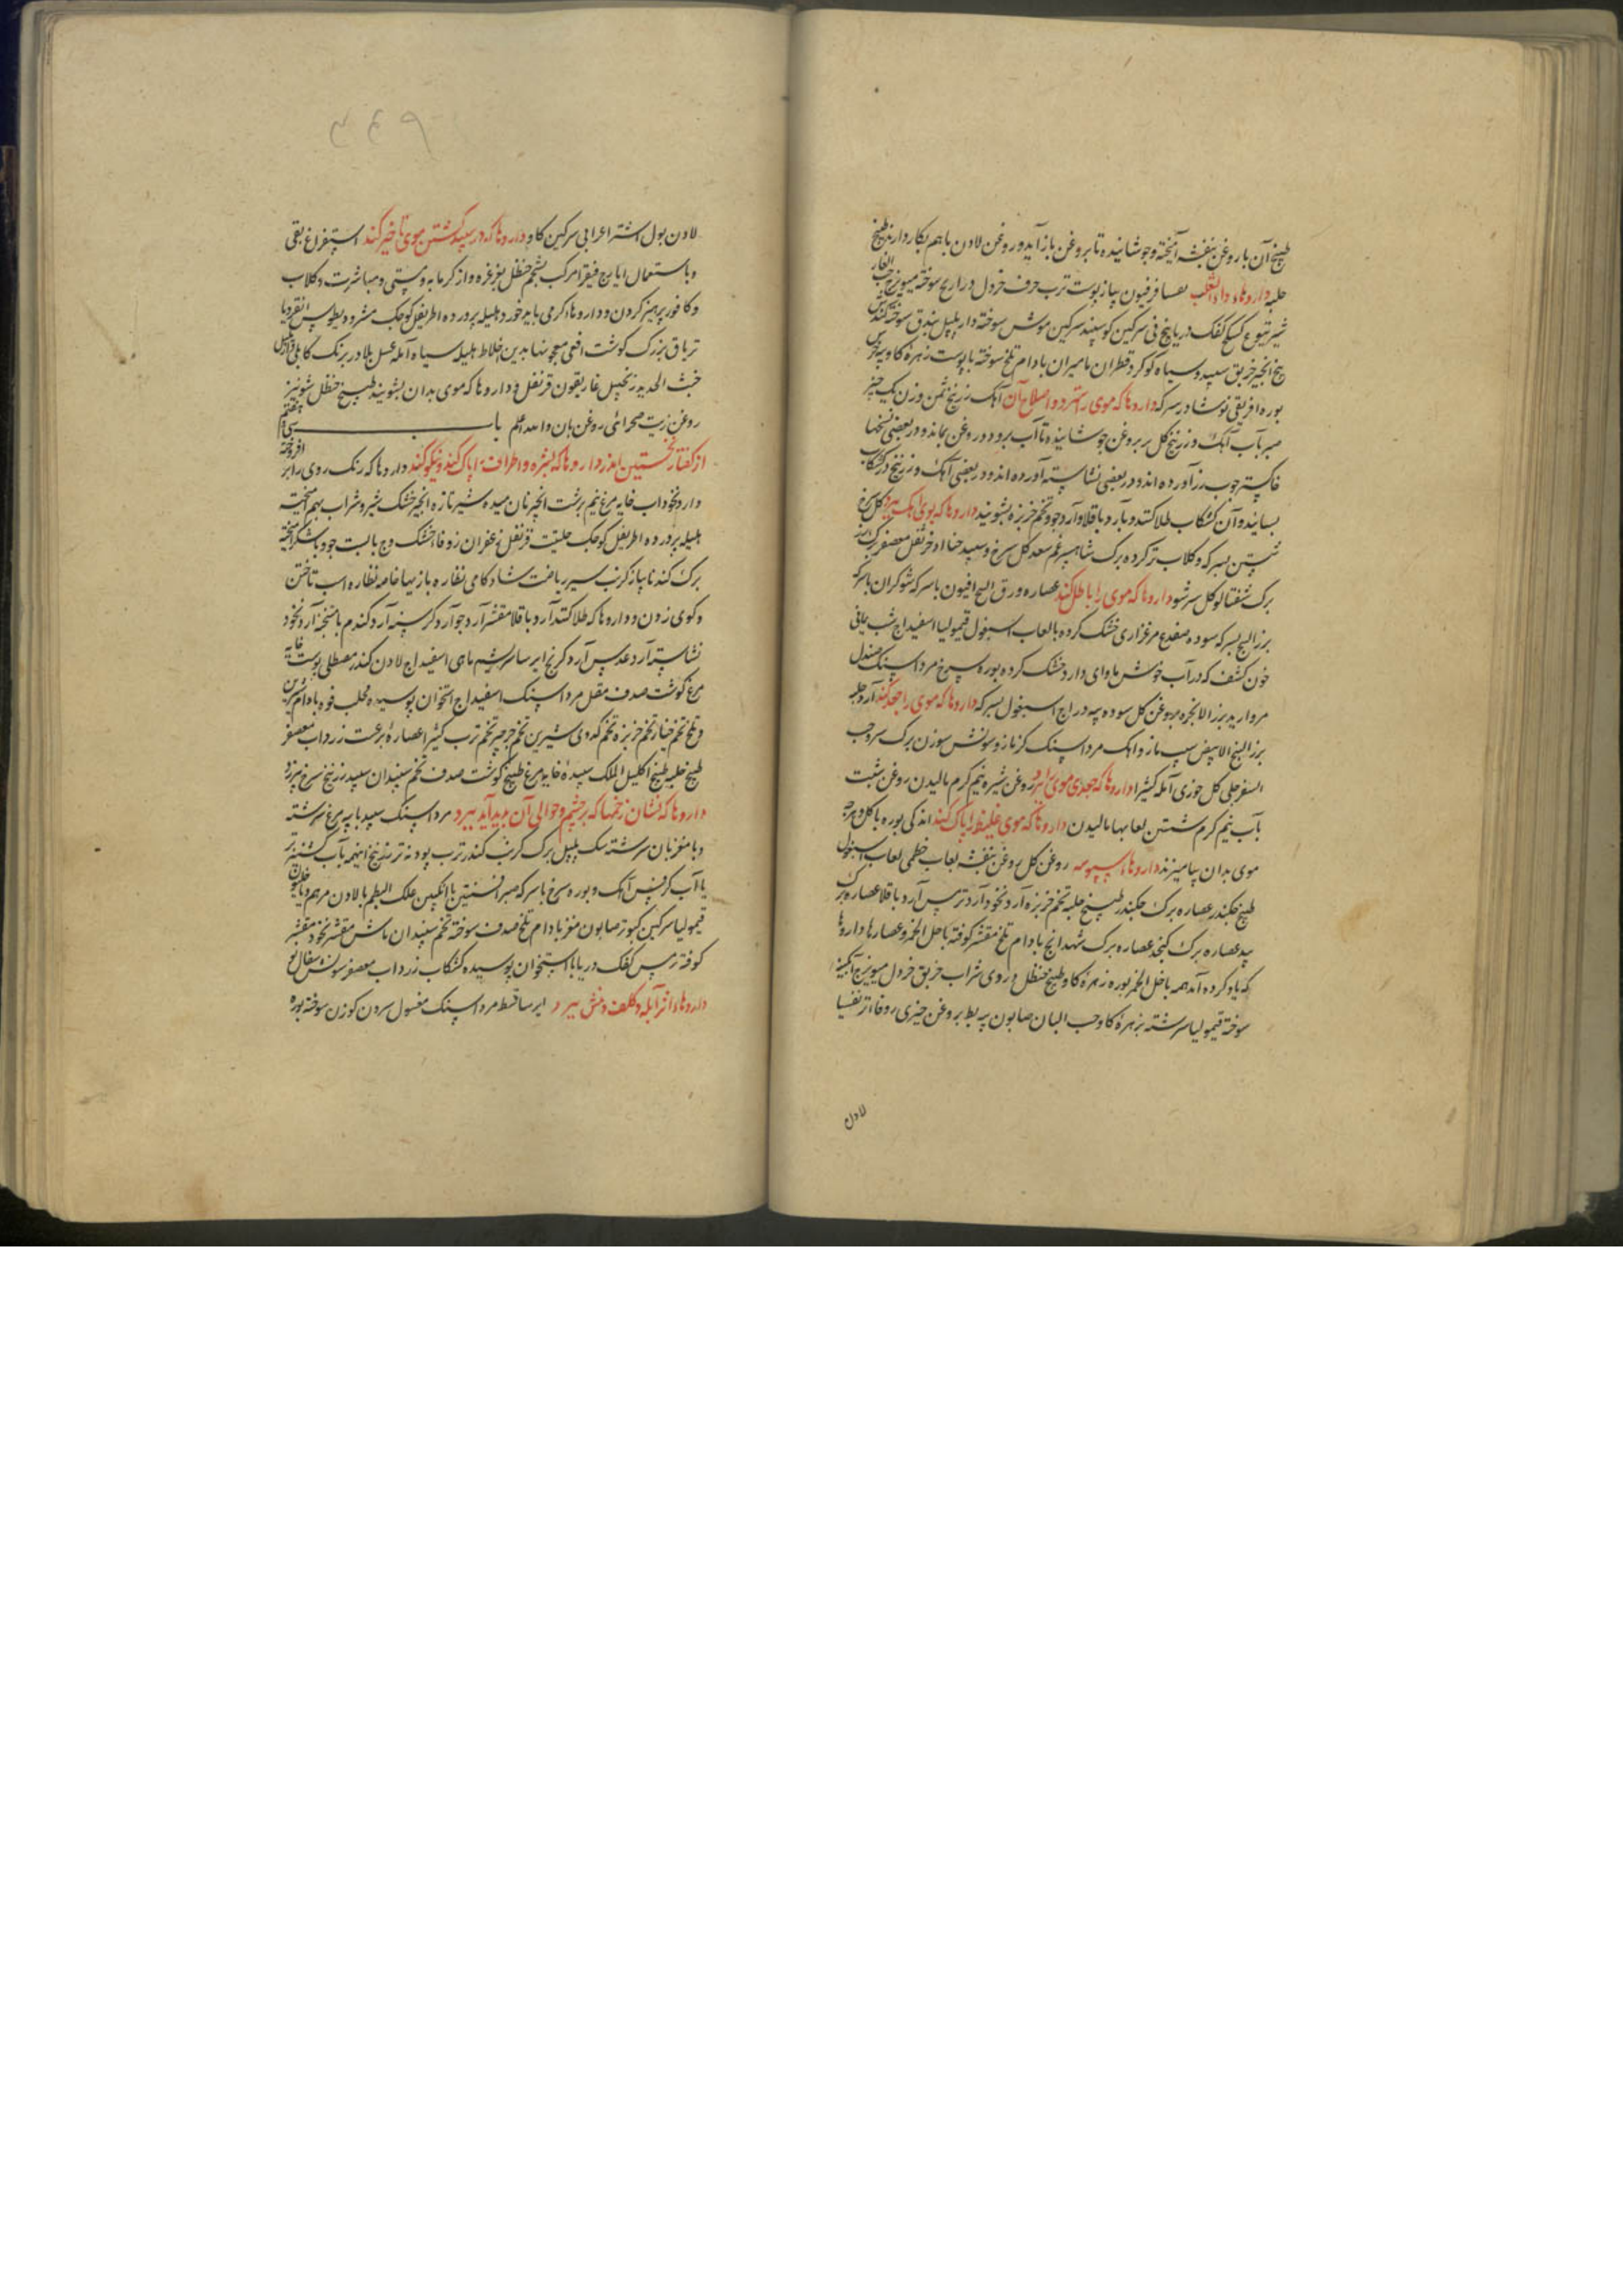 طبیخ آن با روغن بنفشه آمیخته و جوشانیده تا بروغن باز آید و روغن لادن با هم بکار دارند طبیخ
حلبه داروهاء داء الثعلب فرفیون پیاز پوست ترب حرف خردل ذراریح سوخته میویزج حب الغار
شیر یتوع کفک دریا بیخ نی سرکین کوسپند سرکین موش سوخته دار پلپل بندق سوخته
بیخ انجیر خربق سپید و سیاه کوکرد قطران مامیران بادام تلخ سوخته با پوست زهرهٔ کاو
بوره افریقی نوشادر سرکه داروها که موی بسترد و اصلاح آن آهک زرنیخ ثمن وزن یک جز
صبر بآب آهک و زرنیخ کل بر بروغن جوشانیده تا آب برود و روغن بماند و در بعضی نسخها
خاکستر چوب رز آورده اند و در بعضی نشاسته آورده اند و در بعضی آهک و زرنیخ در کشکاب
بسایند و آن کشکاب طلا کنند و بآرد باقلا و آرد جو و تخم خربزه بشویند داروها که بوی آهک ببرد کل سرخ
شستن بسرکه و کلاب تر کرده برک شاهسپرغم سعد کل سرخ و سپید حنا اذخر قرنفل معصفر
برک شفتالو کل سرشو داروها که موی را باطل کند عصاره ورق البنج افیون با سرکه شوکران با سرکه
بزر البنج بسرکه سوده ضفدع مرغزاری خشک کرده بالعاب اسبغول قیمولیا اسفیداج شب یمانی
خون کشف که در آب خوش ماوای دارد خشک کرده بوره سرخ مرداسنک صندل
مروارید بزر الانجره بروغن کل سوده اسبغول بسرکه داروها که موی را جعد کند آرد حلبه
بزر البنج الابیض مازو آهک مرداسنک کزمازو سوزن برک سرو حب
السفرجلی کل خوزی آمله کثیرا داروها که جعدی موی ببرد روغن شیره نیم کرم مالیدن روغن شبت
بآب نیم کرم شستن لعابها مالیدن داروها که موی غلیظ را پاک کند اندکی بوره با کل و هرچه
موی بدان بیامیزند داروهاء سبوسه روغن کل روغن بنفشه لعاب خطمی لعاب اسبغول
طبیخ چکندر عصاره برک چکندر طبیخ حلبه تخم خربزه آرد نخود آرد ترمس آرد باقلا عصاره برک
بید عصاره برک کنجد عصاره برک شهدانج بادام تلخ مقشر کوفته با خل الخمر و عصارها داروها
که یاد کرده آمد همه با خل الخمر بوره زهرهٔ کاو طبیخ حنظل دردی شراب خربق خردل میویزج آبکینه
سوخته قیمولیا سرشته بزهرهٔ کاو حب البان صابون پیه بط بروغن خیری زوفاء تر تفسیا
لادن
۴۴۹
لادن بول اشتر اعرابی سرکین کاو داروها که در سپید کشتن موی تاخیر کند استفراغ بقی
و باستعمال ایارج فیقرا مرکب بشحم حنظل بغرغره و از کرمابه و مستی و مباشرت و کلاب
و کافور پرهیز کردن و داروهاء کرمی باید خورد هلیله پرورده اطریفل کوچک مثرودیطوس انقردیا
تریاق بزرک کوشت افعی معجونها بدین اخلاط هلیله سیاه آمله عسل بلادر برنک کابلی دارپلپل
خبث الحدید زنجبیل غاریقون قرنفل و داروها که موی بدان بشویند طبیخ حنظل شونیز
روغن زیت صحرائی روغن بان والله اعلم باب سی و هفتم
از کفتار نخستین اندر داروها که بشره و اطراف را پاک کند و نیکو کند داروها که رنک روی را افروخته
دارد نخوداب خایه مرغ نیم برشت انجیر نان میده شیر تازه انجیر خشک بشیر و شراب بهم پخته
هلیله پرورده اطریفل کوچک حلتیت قرنفل زعفران زوفاء خشک وج بالبت جو و با شکر آمیخته
برک کندنا پیاز کرنب سیر ریاضت شادکامی نظاره بازیها خاصه نظاره اسب تاختن
و کوی زدن و داروها که طلا کنند آرد باقلا مقشر آرد جو آرد کرسنه آرد کندم با سنجد آرد نخود
نشاسته آرد عدس آرد کرنج ایرسا سریشم ماهی اسفیداج لادن کندر مصطکی پوست خایه
مرغ کوشت صدف مقل مرداسنک اسفیداج استخوان پوسیده محلب فوه بادام شیرین
و تلخ تخم خیار تخم خربزه تخم کدوی شیرین تخم جرجیر تخم ترب کثیرا عصارهٔ زرداب معصفر
طبیخ حلبه طبیخ اکلیل الملک سپیدهٔ خایه مرغ طبیخ کوشت صدف تخم سپندان سپید زرنیخ سرخ و زرد
داروها که نشان زخمها که بر چشم و حوالی آن پدید آید ببرد مرداسنک سپید با پیه مرغ سرشته
و با مغز نان سرشته سک پلپل برک کرنب کندر ترب پودنه تر زرنیخ اینهمه بآب کشنیز تر
یا آب کرفس آهک و بوره سرخ با سرکه صبر افسنتین با انکبین علک البطم با لادن مرهم داخلیون
قیمولیا سرکین کبوتر صابون مغز بادام تلخ صدف سوخته تخم سپندان ماش مقشر نخود مقشر
کوفته ترمس کفک دریا با استخوان پوسیده کشکاب زرداب معصفر سفال نو
داروهاء اثر آبله و کلف و نمش ببرد ایرسا قسط مرداسنک مغسول سرون کوزن سوخته بوره